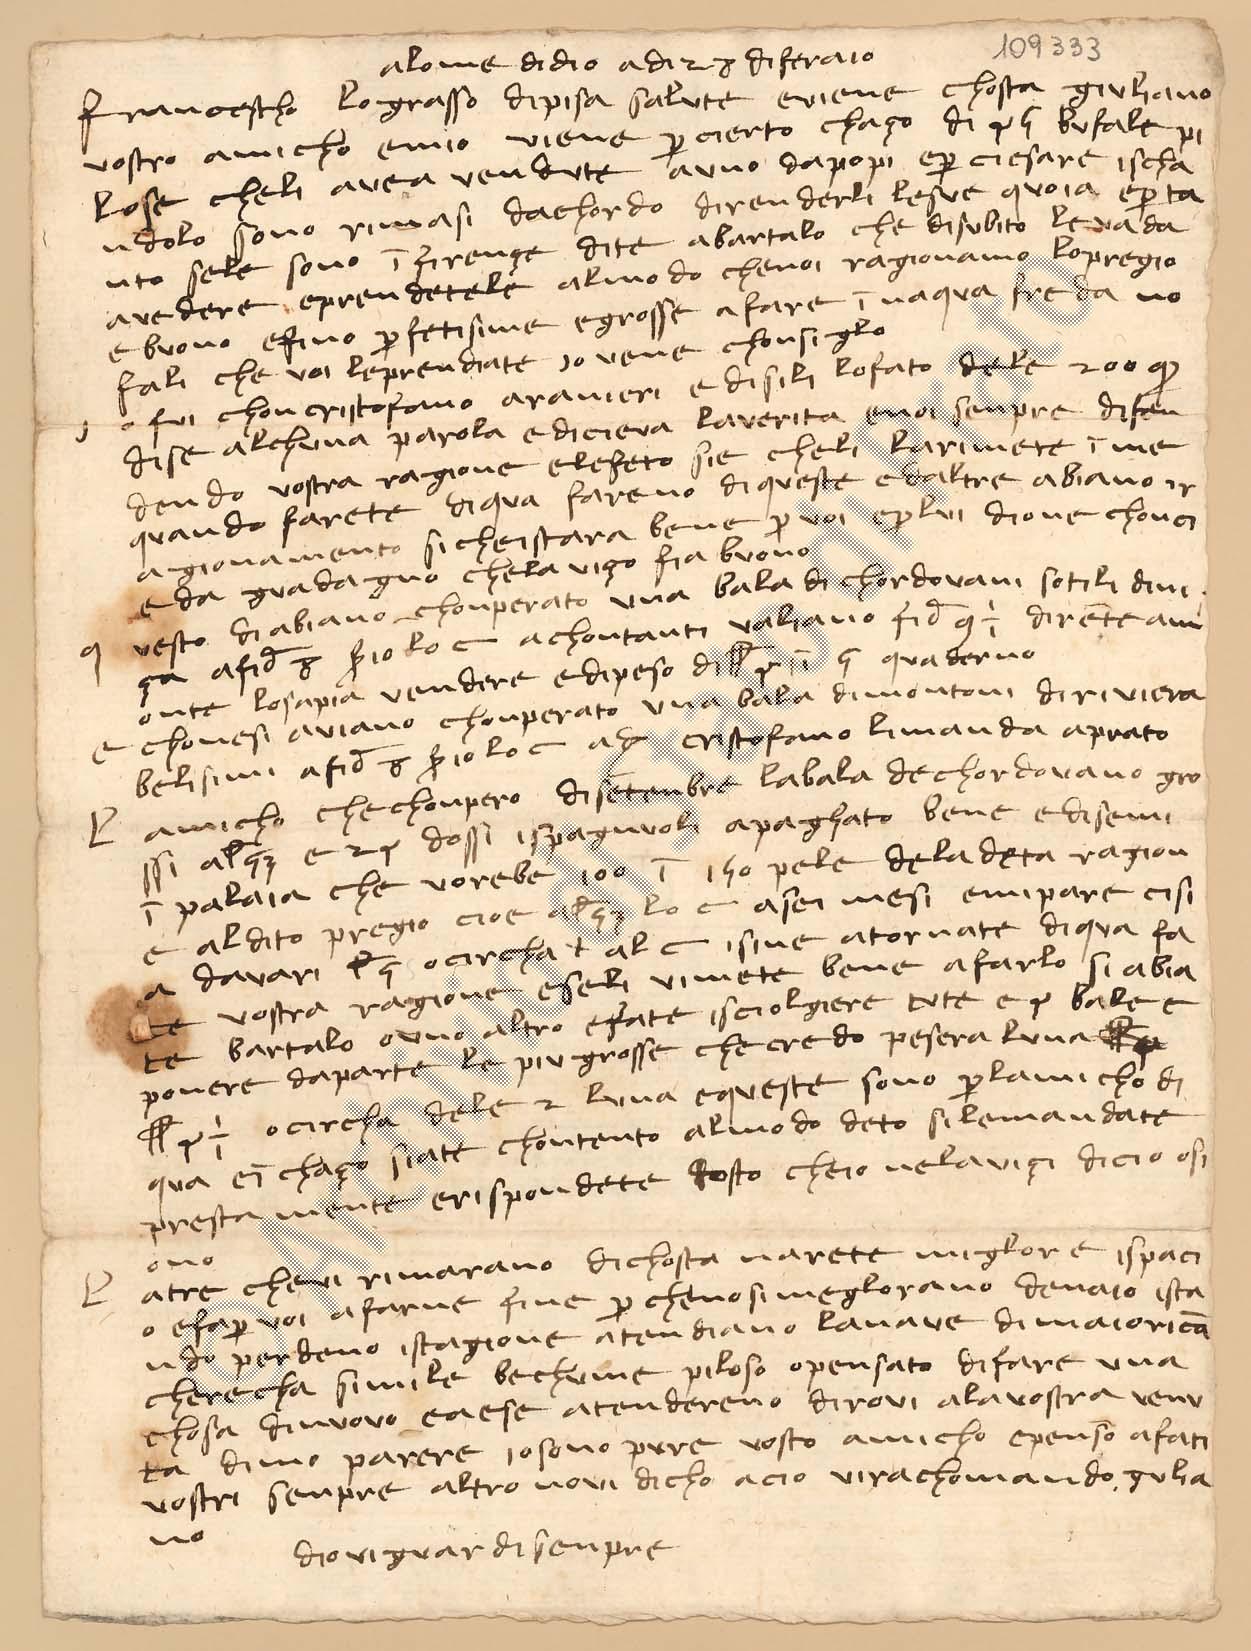 109333
alome didio adi 28 diferaio
Francescho lograsso dipisa salute eviene chosta givliano
vostro amicho emio viene p cierto chaço di bvfale pi
lose cheli avea vendvte avno dapopi ep ciesare ischa
ndolo sono rimasi dachordo direnderli lesve quoia ep ta
nto sele sono ī firençe dite abartalo che disvbito le vada
avedere eprendetele almodo chenoi ragionamo lopregio
e bvono efino pfetisime egrosse afare īnaqva freda no
fali che voi leprendiate io vene chonsiglo
io fvi choncristofano aranieri edisili lofato dele 200
dise alchvna parola edicieva laverita enoi senpre difen
dendo vostra ragione elefeto sie cheli larimete ī me
quando farete diqva fareno diqveste edaltre abiano ir
agionamento sicheistara bene p voi ep lvi dione chonci
eda gvadagno chela viço fia bvono
qvesto di abiano chonperato vna bala di chordovani sotili dini
ça afid 8 lo c achontanti valiano fid direnteam
onte losapia vendere edipeso di quaderno
e chonesi aviano chonperato vna bala dimontoni diriviera
belisimi afid 8 lo c cristofano limanda aprato
L amicho chechonpero disetenbre labala dechordovano gro
ssi e dossi ispagnvoli apaghato bene edisemi
ī palaia che vorebe 100 ī 150 pele dela deta ragion
e aldito pregio cioe lo c asei mesi emipare cisi
a davari ocircha al c isine atornate diqva fa
te vostra ragione eseli vimete bene afarlo si abia
te bartalo ovno altro efate isciolgiere tvte e bale e
ponere daparte le piv grosse checredo pesera lvna
ocircha dele 2 lvna eqveste sono p lamicho di
qva eī chaço siate chontento almodo deto silemandate
prestamente erispondete tosto cheio nelaviçi dicio osi
ono
L atre chevi rimarano dichosta narete miglore ispaci
o efap voi afarne fine p chenosimeglorano denaio ista
ndo perdeno istagione atendiano lanave dimaiorica
cherecha simile bechvme piloso opensato difare vna
chosa dinvovo eaese atendereno dirovi alavostra venv
ta dimo parere iosono pvre vosto amicho epenso afati
vostri senpre altro novi dicho acio virachomando. gvlia
no
diovigvardisenpre